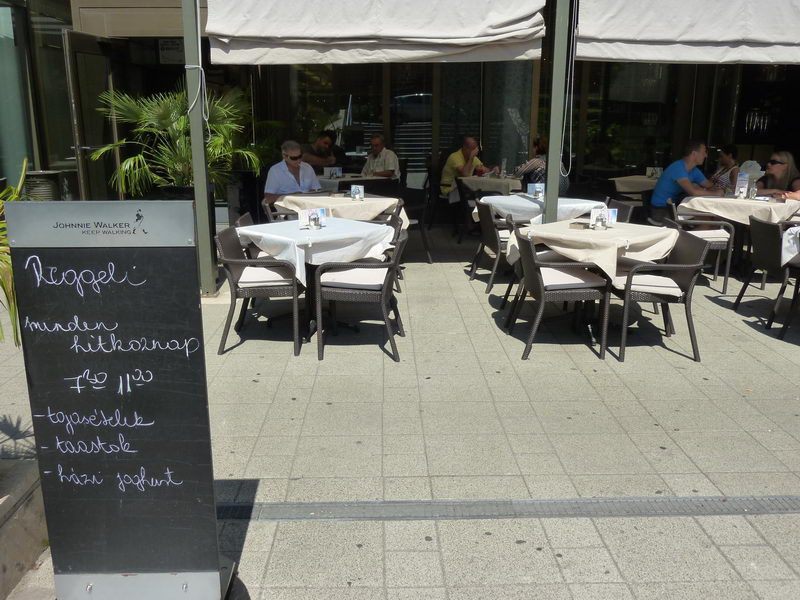 JOHNNIE WALKER
KEEP WALKING
Reggeli
minden
hétköznap
7³⁰ 11⁰⁰
- tojásételek
- toastok
- házi joghurt